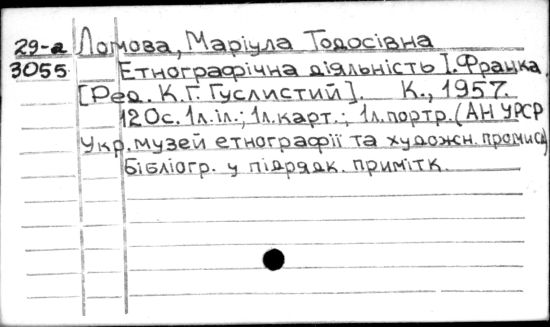 29-а Ломова, Маріула Тодосівна
3055 Етнографічна діяльність І. Франка.
[Ред. К.Г. Гуслистий]. К., 1957.
120с. 1л.іл.; 1л.карт.; 1л.портр. (АН УРСР
Укр. музей етнографії та художн. промисл)
Бібліогр. у підрядк. примітк.